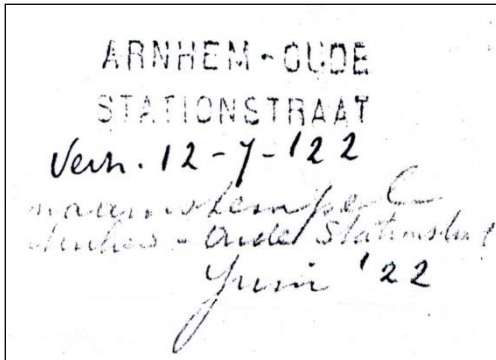 ARNHEM-OUDE
STATIONSTRAAT
Verh. 12-7-'22
naamstempel
Arnhem - Oude Stationstraat
Juni '22